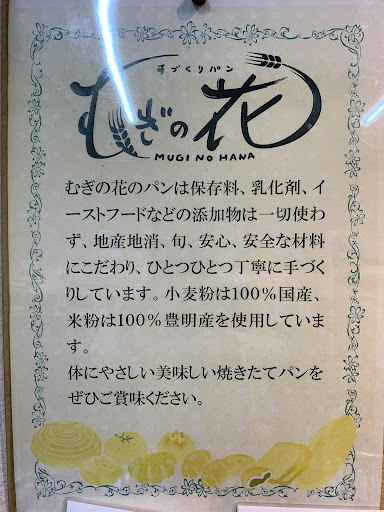 手づくりパン
むぎの花
MUGI NO HANA
むぎの花のパンは保存料、乳化剤、イ
ーストフードなどの添加物は一切使わ
ず、地産地消、旬、安心、安全な材料
にこだわり、ひとつひとつ丁寧に手づく
りしています。小麦粉は100％国産、
米粉は100％豊明産を使用していま
す。
体にやさしい美味しい焼きたてパンを
ぜひご賞味ください。